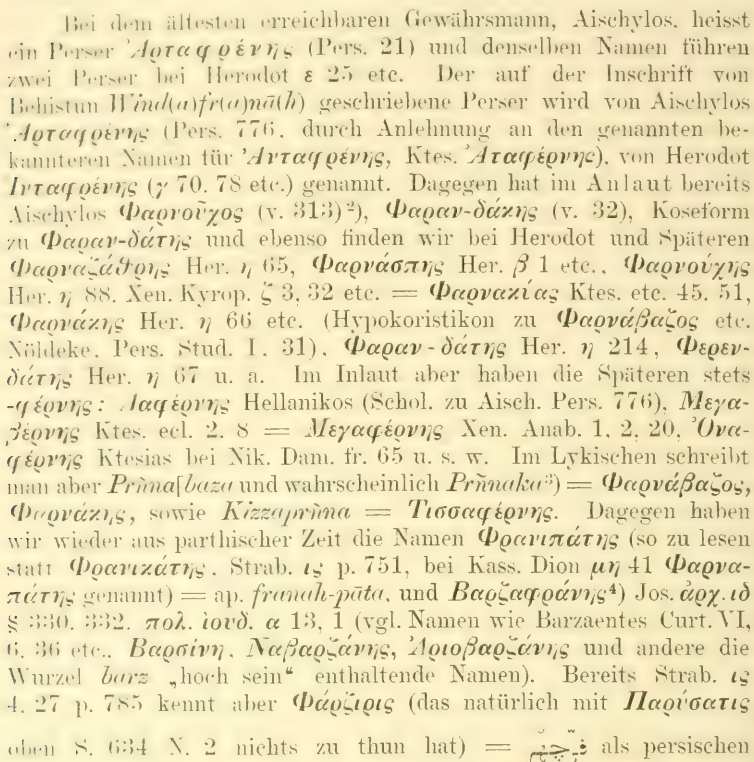 Bei dem ältesten erreichbaren Gewährsmann, Aischylos, heisst
ein Perser Ἀρταφρένης (Pers. 21) und denselben Namen führen
zwei Perser bei Herodot ε 25 etc. Der auf der Inschrift von
Behistun Wind(a)fr(a)nā(h) geschriebene Perser wird von Aischylos
Ἀρταφρένης (Pers. 776, durch Anlehnung an den genannten be-
kannteren Namen für Ἀνταφρένης, Ktes. Ἀταφέρνης), von Herodot
Ἰνταφρένης (γ 70. 78 etc.) genannt. Dagegen hat im Anlaut bereits
Aischylos Φαρνοῦχος (v. 313)²), Φαραν-δάκης (v. 32), Koseform
zu Φαραν-δάτης und ebenso finden wir bei Herodot und Späteren
Φαρναζάθρης Her. η 65, Φαρνάσπης Her. β 1 etc., Φαρνούχης
Her. η 88. Xen. Kyrop. ζ 3, 32 etc. = Φαρνακίας Ktes. etc. 45. 51,
Φαρνάκης Her. η 66 etc. (Hypokoristikon zu Φαρνάβαζος etc.
Nöldeke, Pers. Stud. I, 31), Φαραν-δάτης Her. η 214, Φερεν-
δάτης Her. η 67 u. a. Im Inlaut aber haben die Späteren stets
-φέρνης: Δαφέρνης Hellanikos (Schol. zu Aisch. Pers. 776), Μεγα-
βέρνης Ktes. ecl. 2. 8 = Μεγαφέρνης Xen. Anab. 1, 2, 20, Ὀνα-
φέρνης Ktesias bei Nik. Dam. fr. 65 u. s. w. Im Lykischen schreibt
man aber Prñna[baza und wahrscheinlich Prñnaka³) = Φαρνάβαζος,
Φαρνάκης, sowie Kizzaprñna = Τισσαφέρνης. Dagegen haben
wir wieder aus parthischer Zeit die Namen Φρανιπάτης (so zu lesen
statt Φρανικάτης, Strab. ις p. 751, bei Kass. Dion μη 41 Φαρνα-
πάτης genannt) = ap. franah-pāta, und Βαρζαφράνης⁴) Jos. ἀρχ. ιδ
§ 330. 332. πολ. ἰουδ. α 13, 1 (vgl. Namen wie Barzaentes Curt. VI,
6, 36 etc., Βαρσίνη, Ναβαρζάνης, Ἀριοβαρζάνης und andere die
Wurzel barz „hoch sein“ enthaltende Namen). Bereits Strab. ις
4, 27 p. 785 kennt aber Φάρζιρις (das natürlich mit Παρύσατις
oben S. 634 N. 2 nichts zu thun hat) = als persischen